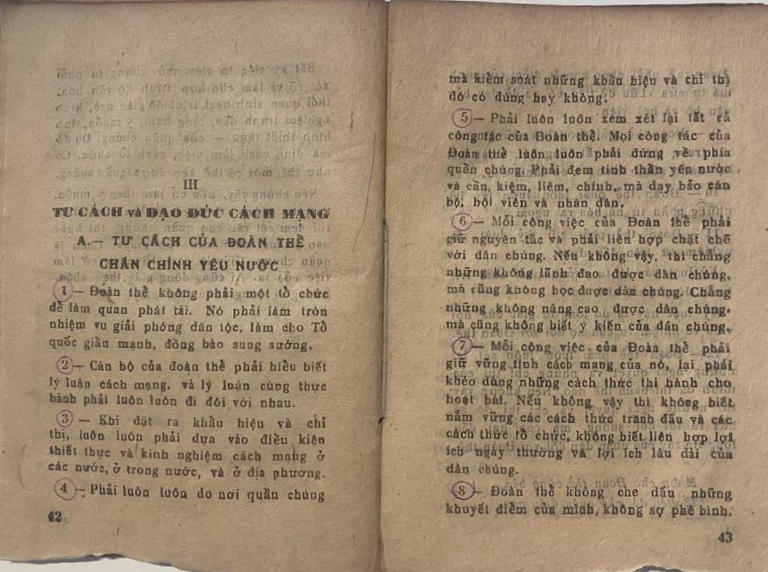 III
TƯ CÁCH và ĐẠO ĐỨC CÁCH MẠNG
A.— TƯ CÁCH CỦA ĐOÀN THỂ
CHÂN CHÍNH YÊU NƯỚC
1 — Đoàn thể không phải một tổ chức
để làm quan phát tài. Nó phải làm tròn
nhiệm vụ giải phóng dân tộc, làm cho Tổ
quốc giầu mạnh, đồng bào sung sướng.
2 — Cán bộ của đoàn thể phải hiểu biết
lý luận cách mạng, và lý luận cùng thực
hành phải luôn luôn đi đôi với nhau.
3 — Khi đặt ra khẩu hiệu và chỉ
thị, luôn luôn phải dựa vào điều kiện
thiết thực và kinh nghiệm cách mạng ở
các nước, ở trong nước, và ở địa phương.
4 — Phải luôn luôn do nơi quần chúng
42
mà kiểm soát những khẩu hiệu và chỉ thị
đó có đúng hay không.
5 — Phải luôn luôn xem xét lại tất cả
công tác của Đoàn thể. Mọi công tác của
Đoàn thể luôn luôn phải đứng về phía
quần chúng. Phải đem tinh thần yêu nước
và cần, kiệm, liêm, chính, mà dạy bảo cán
bộ, hội viên và nhân dân.
6 — Mỗi công việc của Đoàn thể phải
giữ nguyên tắc và phải liên hợp chặt chẽ
với dân chúng. Nếu không vậy, thì chẳng
những không lãnh đạo được dân chúng,
mà cũng không học được dân chúng. Chẳng
những không nâng cao được dân chúng,
mà cũng không biết ý kiến của dân chúng.
7 — Mỗi công việc của Đoàn thể phải
giữ vững tính cách mạng của nó, lại phải
khéo dùng những cách thức thi hành cho
hoạt bát. Nếu không vậy thì không biết
nắm vững các cách thức tranh đấu và các
cách thức tổ chức, không biết liên hợp lợi
ích ngày thường và lợi ích lâu dài của
dân chúng.
8 — Đoàn thể không che dấu những
khuyết điểm của mình, không sợ phê bình.
43